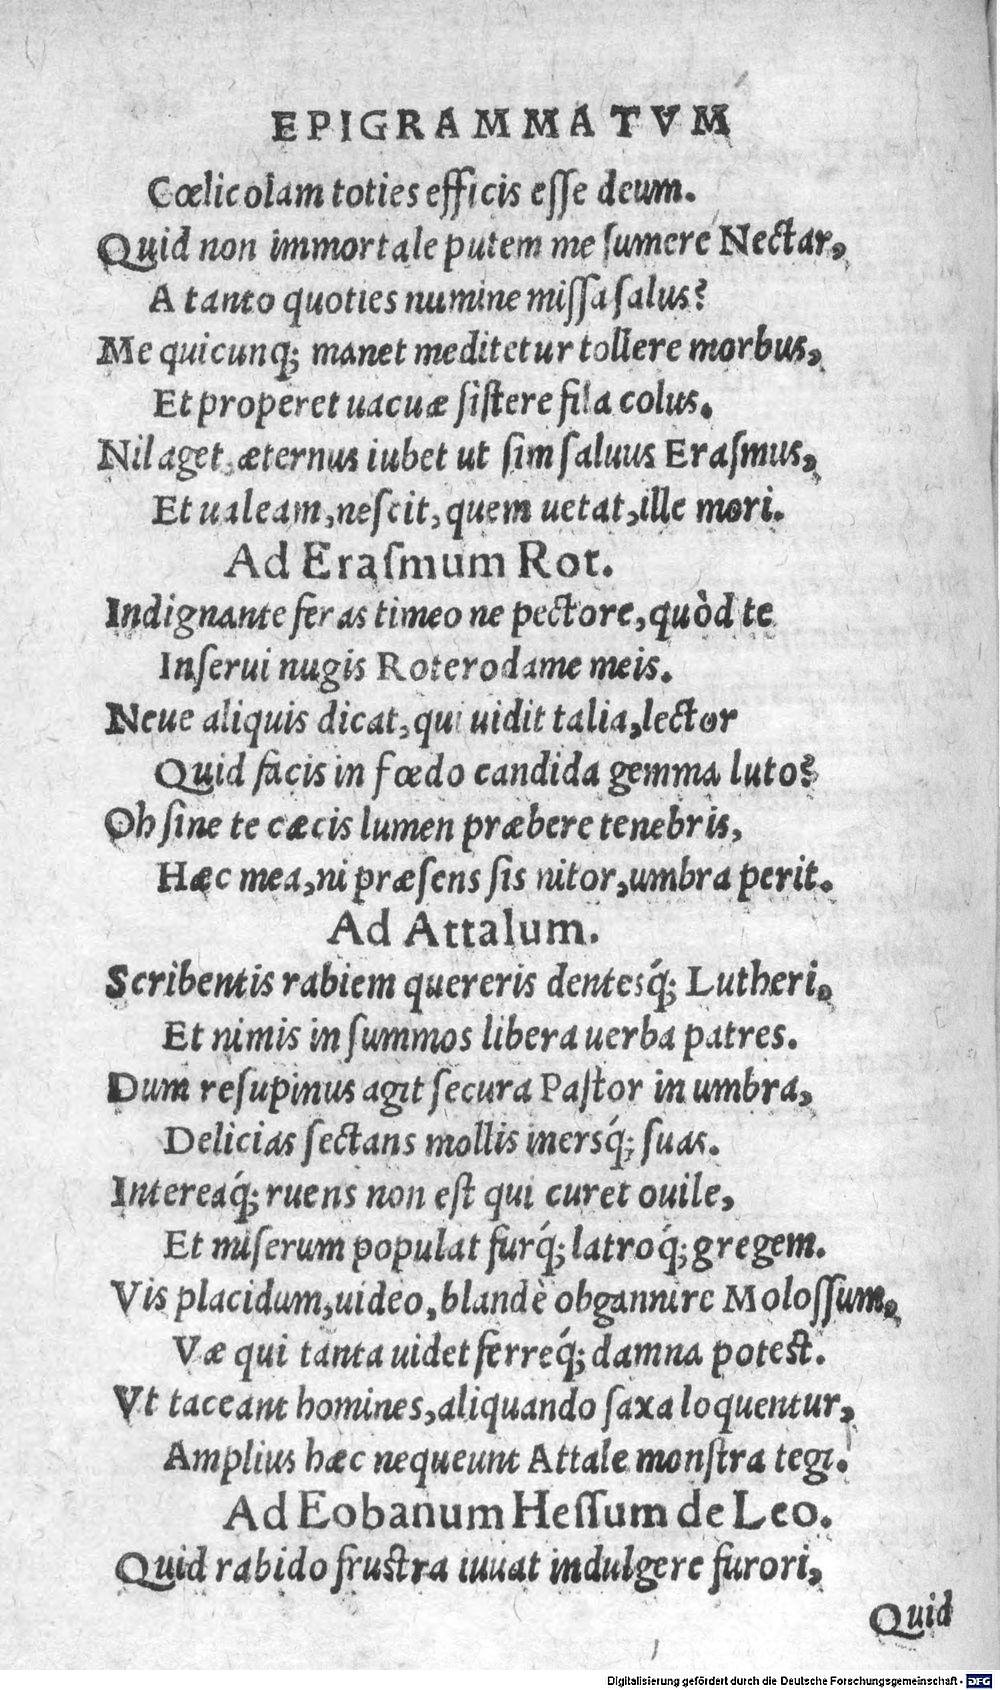 EPIGRAMMATVM
Cœlicolam toties efficis eſſe deum.
Quid non immortale putem me ſumere Nectar,
A tanto quoties numine miſſa ſalus?
Me quicunq; manet meditetur tollere morbus,
Et properet uacuæ ſiſtere fila colus.
Nil aget, æternus iubet ut ſim ſaluus Eraſmus,
Et ualeam, neſcit, quem uetat, ille mori.
Ad Eraſmum Rot.
Indignante feras timeo ne pectore, quòd te
Inſerui nugis Roterodame meis.
Neue aliquis dicat, qui uidit talia, lector
Quid facis in fœdo candida gemma luto?
Ob ſine te cæcis lumen præbere tenebris,
Hæc mea, ni præſens ſis nitor, umbra perit.
Ad Attalum.
Scribentis rabiem quereris dentesq́; Lutheri,
Et nimis in ſummos libera uerba patres.
Dum reſupinus agit ſecura Paſtor in umbra,
Delicias ſectans mollis inersq́; ſuas.
Intereaq́; ruens non eſt qui curet ouile,
Et miſerum populat furq́; latroq́; gregem.
Vis placidum, uideo, blandè obgannire Moloſſum,
Væ qui tanta uidet ferreq́; damna poteſt.
Vt taceant homines, aliquando ſaxa loquentur,
Amplius hæc nequeunt Attale monſtra tegi.
Ad Eobanum Heſſum de Leo.
Quid rabido fruſtra iuuat indulgere furori,
Quid
Digitalisierung gefördert durch die Deutsche Forschungsgemeinschaft - DFG